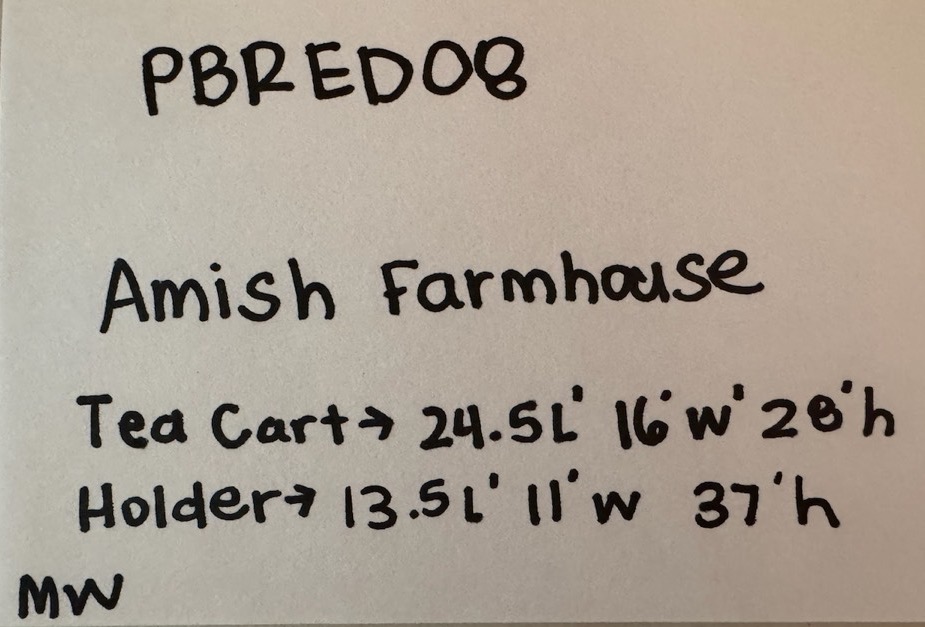 PBRED08
Amish Farmhouse
Tea Cart→ 24.5L' 16'w' 28'h
Holder→ 13.5L' 11'w 37'h
MW